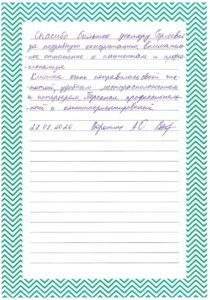 Спасибо большое доктору
за подробную консультацию, вниматель-
ное отношение к пациентам и профес-
сионализм
Клиника очень понравилась своей чис-
тотой, удобным месторасположением
и интерьером. Персонал профессиональ-
ный и клиентоориентированный
28.08.2020.